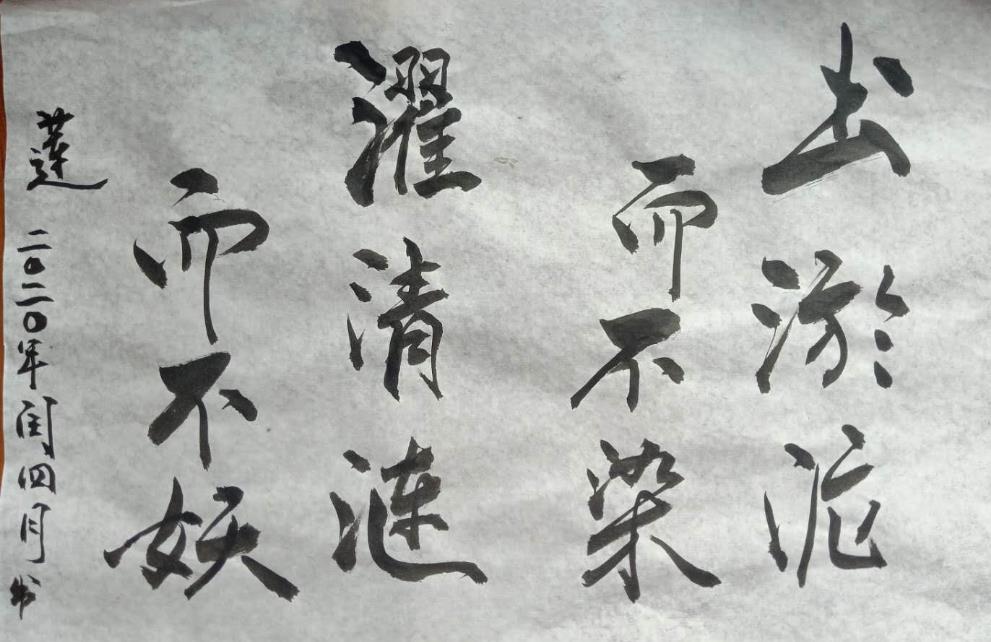 出淤泥
而不染
濯清涟
而不妖
莲
二〇二〇年闰四月书